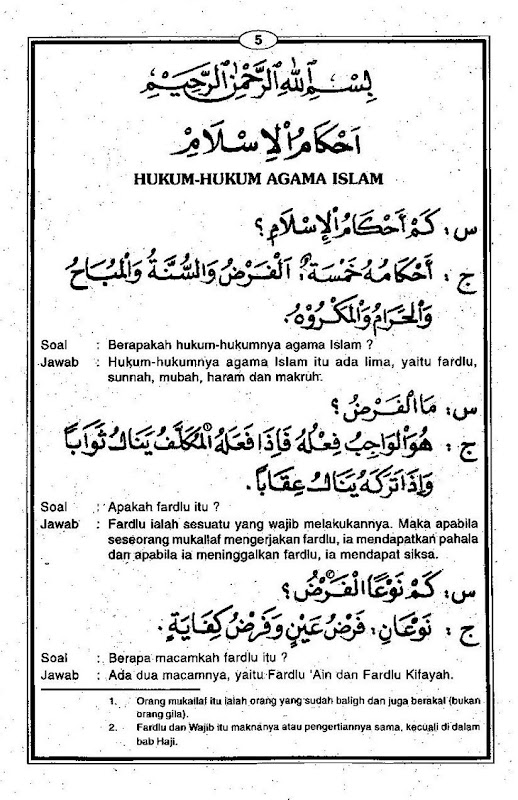 5
بِسْمِ اللهِ الرَّحْمٰنِ الرَّحِيْمِ
اَحْكَامُ الْاِسْلَامِ
HUKUM-HUKUM AGAMA ISLAM
س : كَمْ اَحْكَامُ الْإِسْلَامِ ؟
ج : أَحْكَامُهُ خَمْسَةٌ : اَلْفَرْضُ وَالسُّنَّةُ وَالْمُبَاحُ
وَالْحَرَامُ وَالْمَكْرُوْهُ.
Soal : Berapakah hukum-hukumnya agama Islam ?
Jawab : Hukum-hukumnya agama Islam itu ada lima, yaitu fardlu,
sunnah, mubah, haram dan makruh.
س : مَا الْفَرْضُ ؟
ج : هُوَ الْوَاجِبُ فِعْلُهُ فَإِذَا فَعَلَهُ الْمُكَلَّفُ يَنَالُ ثَوَابًا
وَإِذَا تَرَكَهُ يَنَالُ عِقَابًا.
Soal : Apakah fardlu itu ?
Jawab : Fardlu ialah sesuatu yang wajib melakukannya. Maka apabila
seseorang mukallaf mengerjakan fardlu, ia mendapatkan pahala
dan apabila ia meninggalkan fardlu, ia mendapat siksa.
س : كَمْ نَوْعًا الْفَرْضُ ؟
ج : نَوْعَانِ : فَرْضُ عَيْنٍ وَفَرْضُ كِفَايَةٍ.
Soal : Berapa macamkah fardlu itu ?
Jawab : Ada dua macamnya, yaitu Fardlu 'Ain dan Fardlu Kifayah.
1. Orang mukallaf itu ialah orang yang sudah baligh dan juga berakal (bukan
orang gila).
2. Fardlu dan Wajib itu maknanya atau pengertiannya sama, kecuali di dalam
bab Haji.